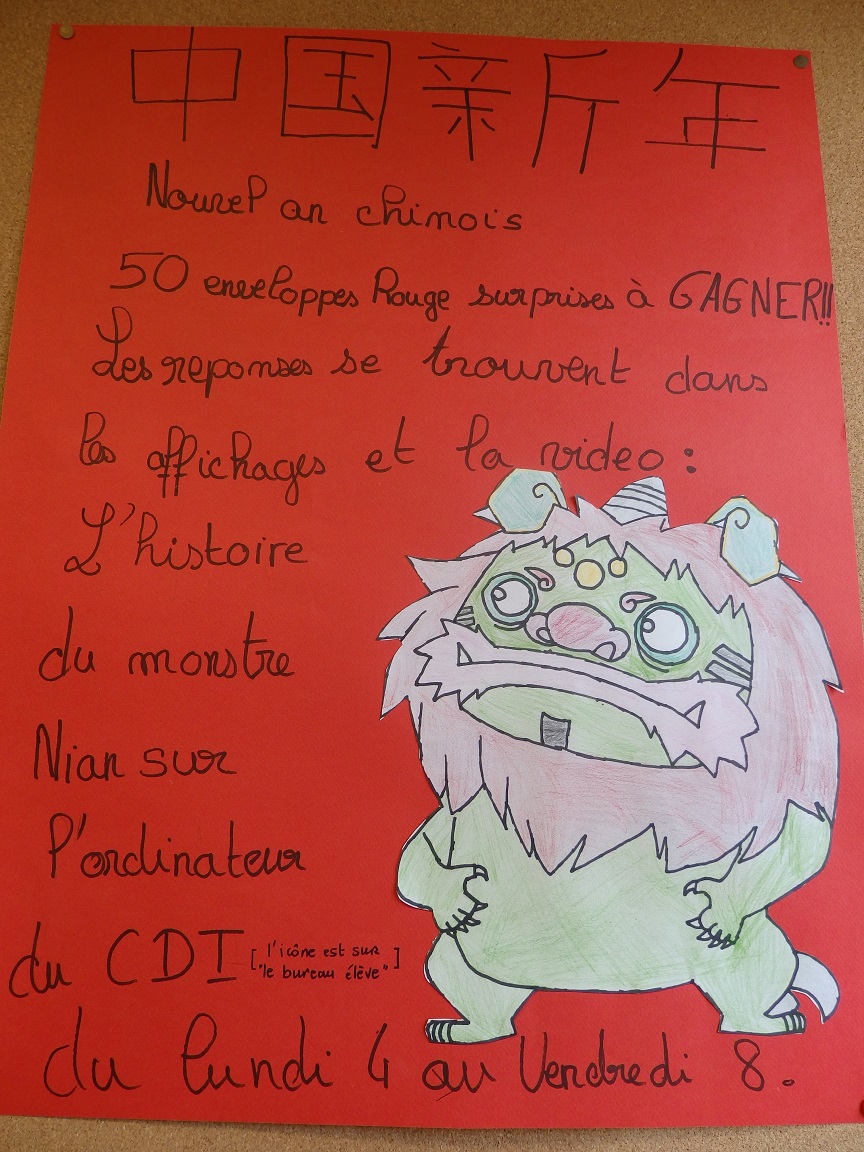 中国新年
Nouvel an chinois
50 enveloppes Rouge surprises à GAGNER!!
Les reponses se trouvent dans
les affichages et la video :
L'histoire
du monstre
Nian sur
l'ordinateur
du CDI [l'icône est sur
"le bureau élève"]
du lundi 4 au Vendredi 8.